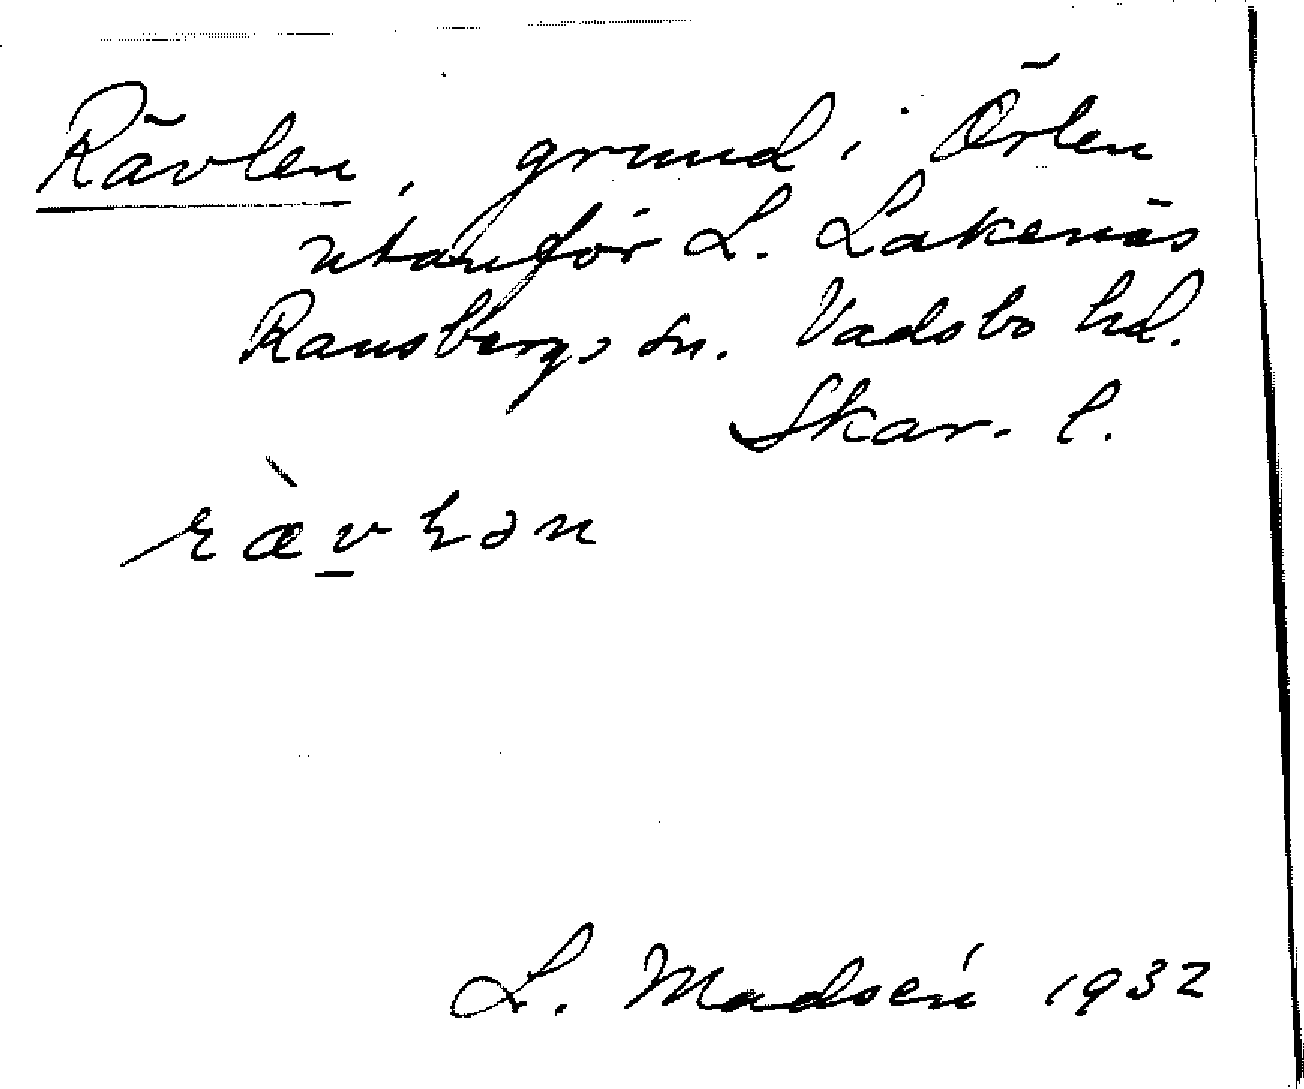 Rävlen, grund i Örlen
utanför L. Lakenäs
Ransbergs sn. Vadsbo hd.
Skar. l.
L. Madsén 1932